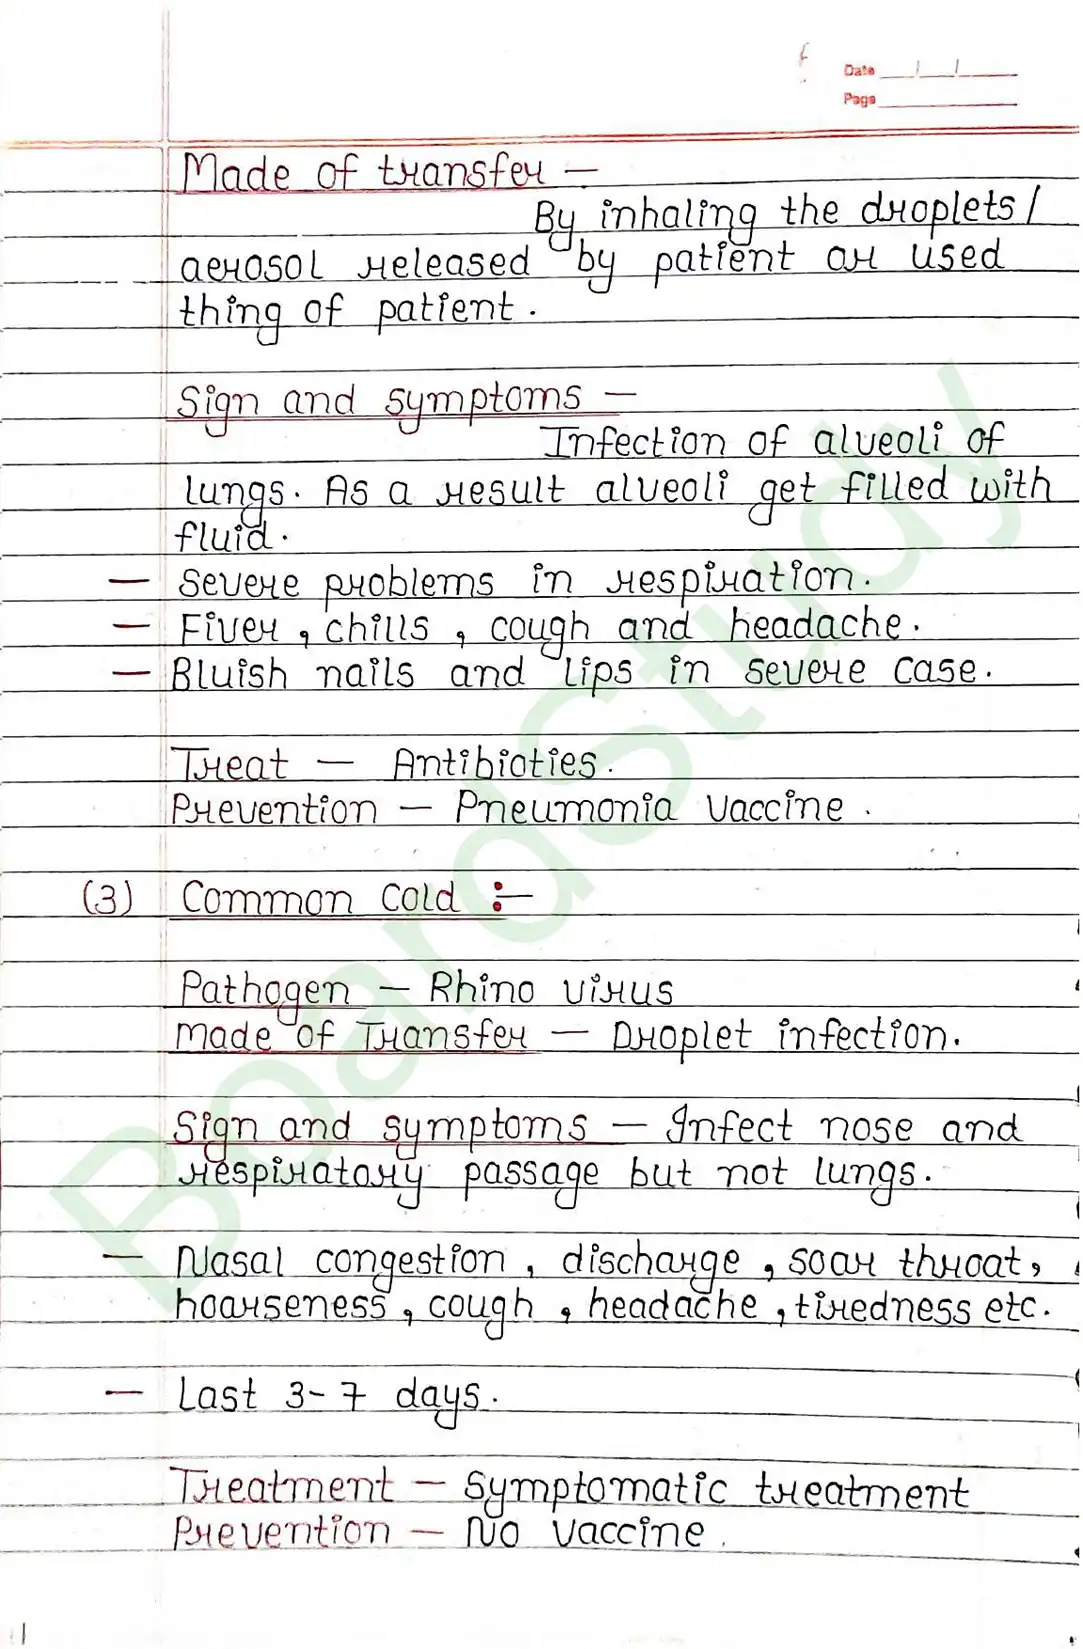 Date
Page
Made of transfer —
By inhaling the droplets/
aerosol released by patient or used
thing of patient.
Sign and symptoms —
Infection of alveoli of
lungs. As a result alveoli get filled with
fluid.
— Severe problems in respiration.
— Fiver, chills, cough and headache.
— Bluish nails and lips in severe case.
Treat — Antibioties.
Prevention — Pneumonia vaccine.
(3) Common Cold :-
Pathogen — Rhino virus
Made of Transfer — Droplet infection.
Sign and symptoms — Infect nose and
respiratory passage but not lungs.
— Nasal congestion, discharge, soar throat,
hoarseness, cough, headache, tiredness etc.
— Last 3-7 days.
Treatment — Symptomatic treatment
Prevention — No vaccine.
BoardStudy